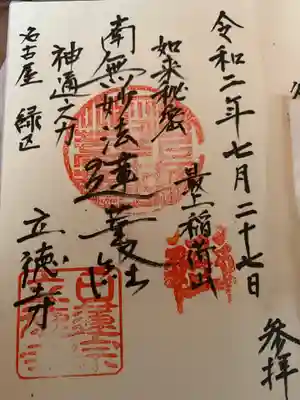 令和二年七月二十七日
参拝
最上稲荷山
如来秘密
南無妙法蓮華経
神通之力
立徳寺
名古屋 緑区